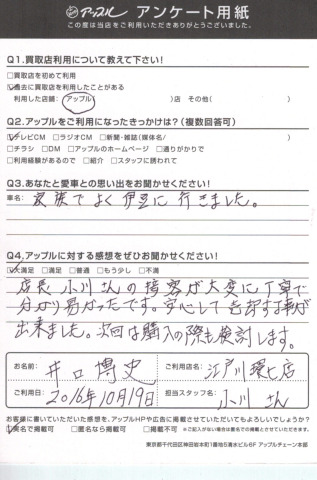 アップル アンケート用紙
この度は当店をご利用いただきありがとうございました。
Q1.買取店利用について教えて下さい!
□買取店を初めて利用
☑過去に買取店を利用したことがある
利用した店舗: アップル( )店 その他( )
Q2.アップルをご利用になったきっかけは?(複数回答可)
☑テレビCM □ラジオCM □新聞・雑誌(媒体名/ )
□チラシ □DM □アップルのホームページ □通りがかりで
□利用経験があるので □紹介 □スタッフに誘われて
Q3.あなたと愛車との思い出をお聞かせください!
車名:
家族でよく伊豆に行きました。
Q4.アップルに対する感想をぜひお聞かせください!
☑大満足 □満足 □普通 □もう少し □不満
店長 小川さんの接客が大変に丁寧で
分かり易かったです。安心して売却する事が
出来ました。次回は購入の際も検討します。
お名前: 井口博史
ご利用店名: 江戸川環七店
ご利用日: 2016年10月19日
担当スタッフ名: 小川さん
お客様に書いていただいた感想を、アップルHPや広告に掲載させていただいてもよろしいでしょうか?
☑実名で掲載可 □匿名なら掲載可 □掲載不可 ※ご記入がない場合は匿名での掲載とさせていただきます。
東京都千代田区神田岩本町1番地5清水ビル6F アップルチェーン本部